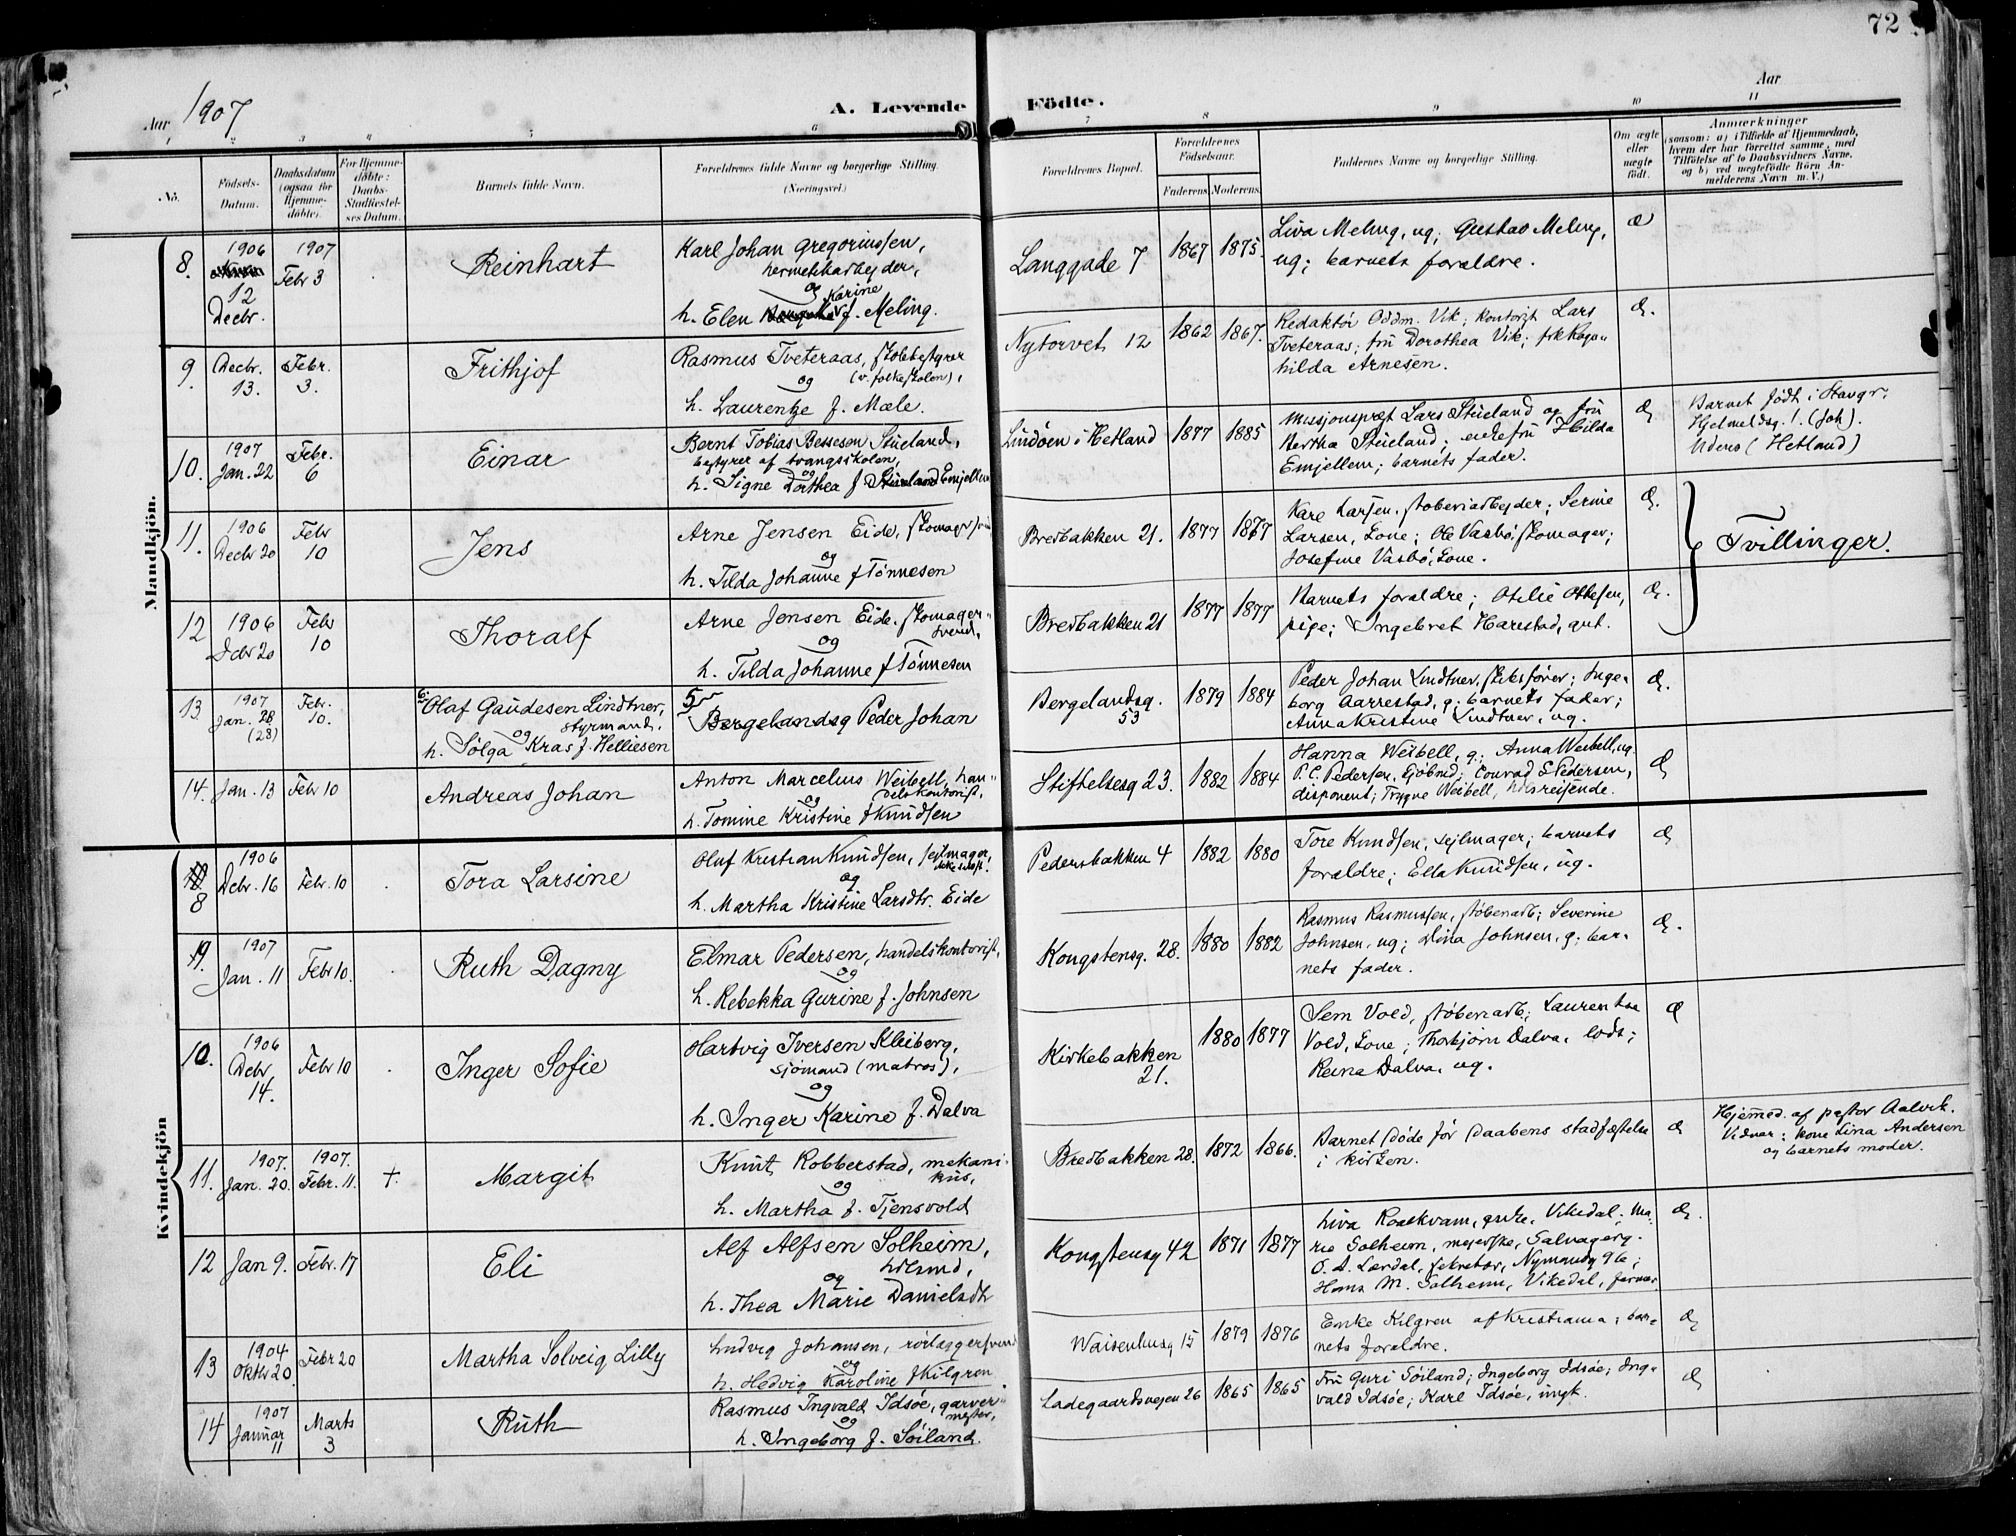 72
Aar 1907
A. Levende Födte.
Aar
1 2 3 4 5 6 7 8 9 10 11
No.
Födsels-
Datum.
Daabsdatum
(ogsaa for
Hjemme-
döbte).
For Hjemme-
döbte:
Daabs-
Stadfæstel-
ses Datum.
Barnets fulde Navn.
Forældrenes fulde Navne og borgerlige Stilling.
(Næringsvei.)
Forældrenes Bopæl.
Forældrenes
Födselsaar.
Faderens Moderens
Faddernes Navne og borgerlige Stilling.
Om ægte
eller
uægte
födt.
Anmærkninger
(saasom: a) i Tilfælde af Hjemmedaab,
hvem der har forrettet samme, med
Tilföielse af to Daabsvidners Navne,
og b) ved uægtefödte Börn An-
melderens Navn m. V.)
Mandkjön.
8.
1906
12
Decbr.
1907
Febr 3
Reinhart
Karl Johan Gregoriussen,
hermetikarbejder,
og
Karine
h. Elen f. Meling.
Langgade 7
1867
1875.
Liva Meling, ug; Gustav Meling,
ug; barnets forældre.
Æ
9.
Decbr.
13.
Febr.
3.
Frithjof
Rasmus Tveteraas, skolebestyrer
og (v. folkeskolen),
h. Laurentze f. Mæle.
Nytorvet 12
1862
1867.
Redaktør Oddm. Vik; kontorist Lars
Tveteraas; fru Dorothea Vik; frk Ragn-
hilda Arnesen.
Æ.
10.
1907
Jan. 22
Febr.
6
Einar
Bernt Tobias Bessesen Stueland,
bestyrer af tvangsskolen,
og
h. Signe Dorthea f Stueland Emjellem
Lindøen i Hetland
1877
1885
Missjonsprest Lars Stueland og fru
Bertha Stueland; enkefru Hilda
Emjellem; barnets fader.
Æ
Barnet født i Stavgr.
Hjelmeldsg. 1. (Joh).
Udenb (Hetland)
11.
1906
Decbr 20
Febr
10
Jens
Arne Jensen Eide, skomagersvend
og
h. Tilda Johanne f Tønnesen
Bredbakken 21.
1877
1877
Kare Larsen, støberiarbejder; Serine
Larsen, kone; Ole Vasbø, skomager;
Josefine Vasbø, kone.
Æ.
Tvillinger.
12
1906
Dcbr 20
Febr
10
Thoralf
Arne Jensen Eide, skomager-
svend,
og
h. Tilda Johanne f Tønnesen
Bredbakken 21
1877
1877
Barnets forældre; Otilie Ottesen,
pige; Ingebret Harestad, gut.
Æ.
13
1907
Jan. 28
(28)
Febr.
10.
6.
Olaf Gaudesen Lindtner,
styrmand,
og
h. Solga Kras f. Helliesen
5
Bergelandsg Peder Johan
Bergelandsg.
53
1879
1884
Peder Johan Lindtner, skibsfører; Inge-
borg Aarrestad, g; barnets fader;
Anna Kristine Lindtner, ug.
Æ.
14.
Jan. 13
Febr 10
Andreas Johan
Anton Marcelius Weibell, han-
delskontorist,
og
h. Tomine Kristine f Knudsen
Stiftelsesg 23.
1882
1884
Hanna Weibell, g.; Anna Weibell, ug.
P.C. Pedersen, kjøbmd; Conrad L Pedersen,
disponent; Trygve Weibell, hdlsreisende.
Æ
Kvindekjön
8
1906
Dcbr. 16
Febr. 10
Tora Larsine
Oluf Kristian Knudsen, sejlmager,
og
h. Martha Kristine Larsdtr. Eide
Pedersbakken 4
1882
1880
Tore Knudsen, sejlmager; barnets
forældre; Ella Knudsen, ug.
Æ
9.
1907
Jan. 11
Febr 10.
Ruth Dagny
Elmar Pedersen, handelskontorist,
og
h. Rebekka Gurine f. Johnsen
Kongstensg. 28.
1880
1882
Rasmus Rasmussen, støberiarb; Severine
Johnsen, ug; Dina Johnsen, g; bar-
nets fader.
Æ.
10.
1906
Dcbr.
14.
Febr 10
Inger Sofie
Hartvig Iversen Kleiberg,
sjømand (matros),
og
h. Inger Karine f. Dalva
Kirkebakken
21.
1880
1877
Sem Vold, støberiarb; Laurentsa
Vold, kone; Thorbjørn Dalva, lods;
Reina Dalva, ug.
Æ
11.
1907.
Jan. 20.
1907.
Febr. 11.
+
Margit
Knut Robberstad, mekani-
kus,
og
h. Martha f. Tjensvold
Bredbakken 28.
1872
1866.
Barnet døde før daabens stadfæstelse
i kirken.
Æ
Hjemmed. af pastor Aalvik.
Vidner: kone Lina Andersen
og barnets moder.
12
Jan 9.
Febr. 17
Eli
Alf Alfsen Solheim,
og
h. Thea Marie Danielsdtr
Kongstensg 42
1871
1877
Liva Roalkvam, enke, Vikedal; Ma-
rie Solheim, mejerske, Salvagerg.
O. A. Lærdal, sekretær, Nymansg 96;
Hans M. Solheim, Vikedal, farver
Æ.
13
1904
Oktbr 20.
Febr 20
Martha Solveig Lilly
Ludvig Johansen, rørlæggersvend
og
h. Hedvig Karoline f Kilgren
Waisenhusg 15
1879
1876
Enke Kilgren af Kristiania; bar-
nets forældre.
Æ
14
1907
Januar
11
Marts
3
Ruth
Rasmus Ingvald Idsøe, garver-
mester,
og
h. Ingeborg f. Søiland.
Ladegaardsvejen 26
1865
1865
Fru Guri Søiland; Ingeborg Idsøe; Ing-
vald Idsøe; Karl Idsøe, ungk.
Æ